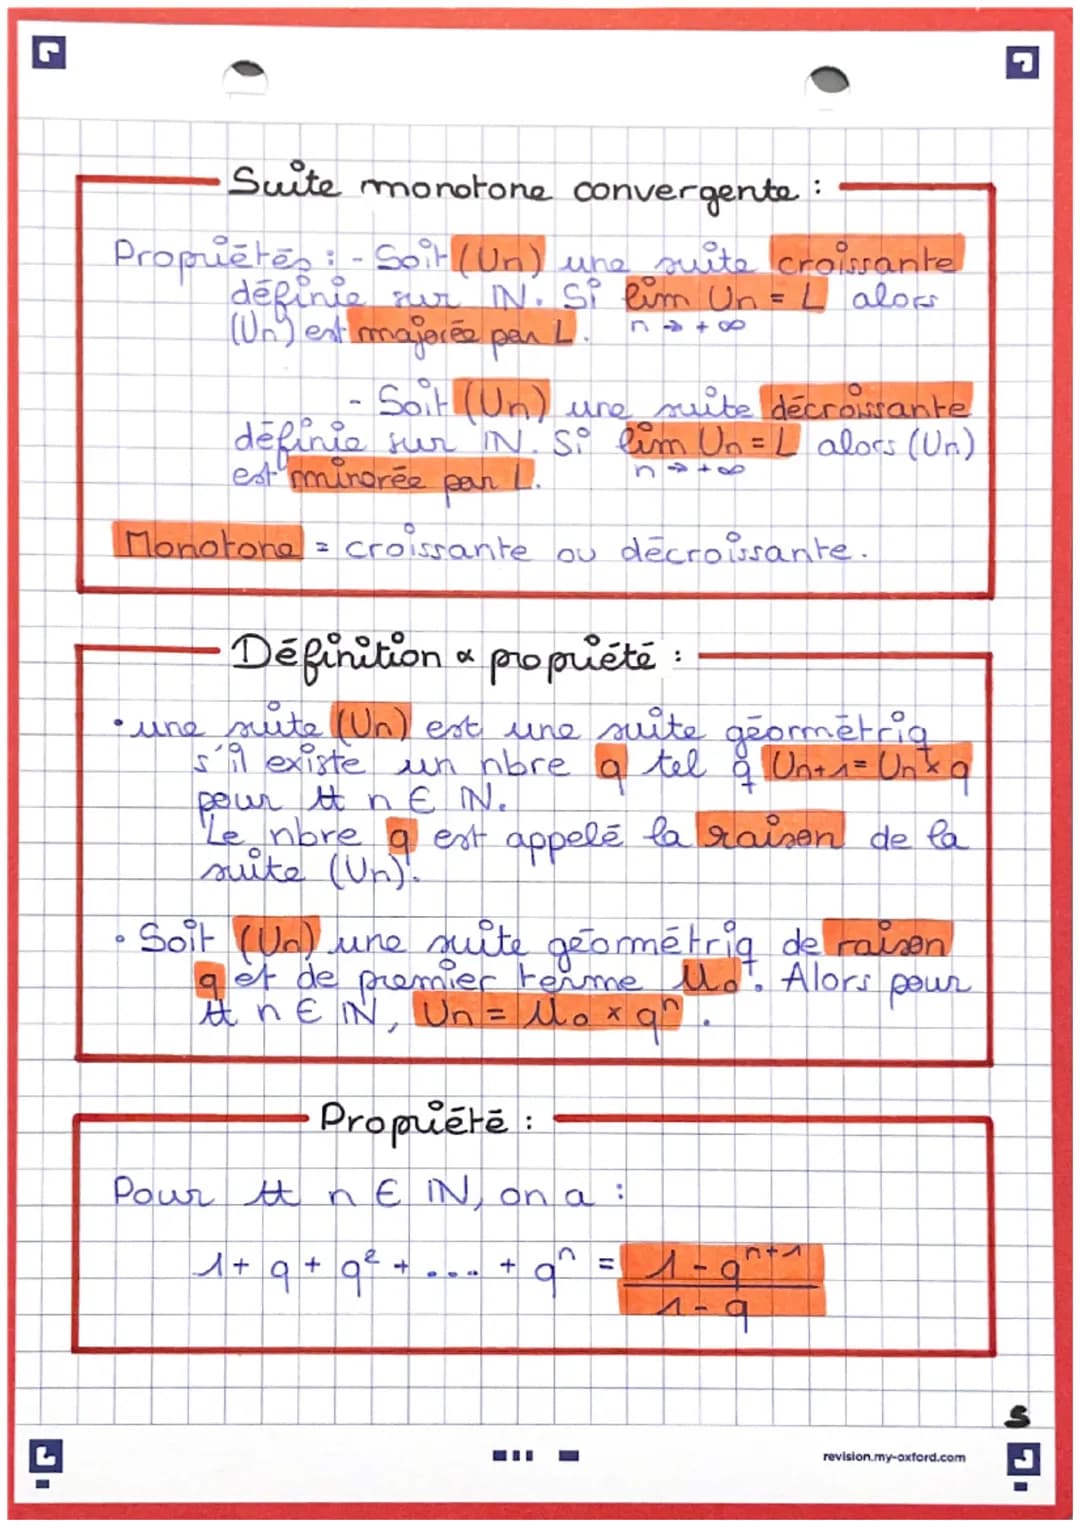 Suite monotone convergente :
Propriétés : - Soit (Un) une suite croissante
définie sur IN. Si lim Un = L alors
n → +∞
(Un) est majorée par L.
- Soit (Un) une suite décroissante
définie sur IN. Si lim Un = L alors (Un)
n → +∞
est minorée par L.
Monotone = croissante ou décroissante.
Définition & propriété :
• une suite (Un) est une suite géométriq
s'il existe un nbre q tel q Un+1 = Un × q
pour tt n ∈ IN.
Le nbre q est appelé la raison de la
suite (Un).
• Soit (Un) une suite géométriq de raison
q et de premier terme U₀. Alors pour
tt n ∈ IN, Un = U₀ × qⁿ.
Propriété :
Pour tt n ∈ IN, on a :
1 + q + q² + .... + qⁿ = 1 - qⁿ⁺¹
1 - q
S
revision.my-oxford.com